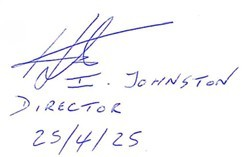 I. JOHNSTON
DIRECTOR
25/4/25